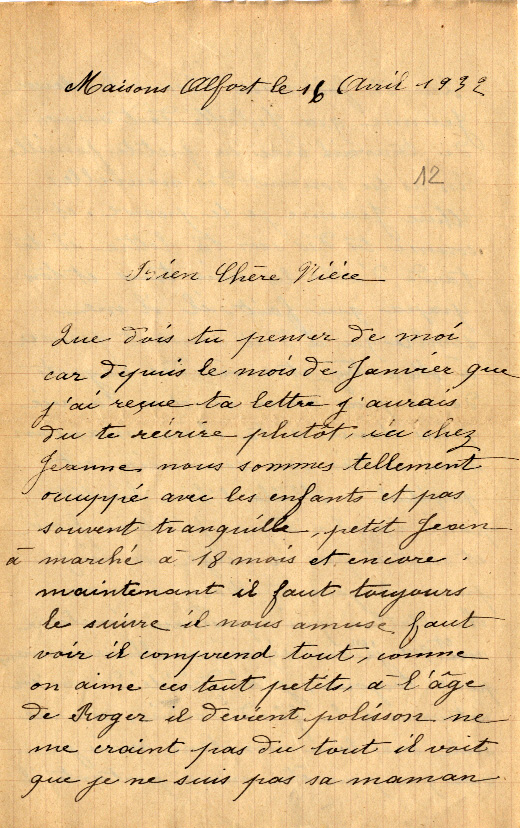 Maisons Alfort le 16 Avril 1932
12
Bien Chère Nièce
Que dois tu penser de moi
car depuis le mois de Janvier que
j'ai reçue ta lettre j'aurais
du te réecrire plutôt, ici chez
Jeanne nous sommes tellement
ocuppé avec les enfants et pas
souvent tranquille, petit Jean
à marché à 18 mois et encore
maintenant il faut toujours
le suivre il nous amuse faut
voir il comprend tout, comme
on aime ces tout petits, à l'âge
de Roger il devient polisson ne
me craint pas du tout il voit
que je ne suis pas sa maman